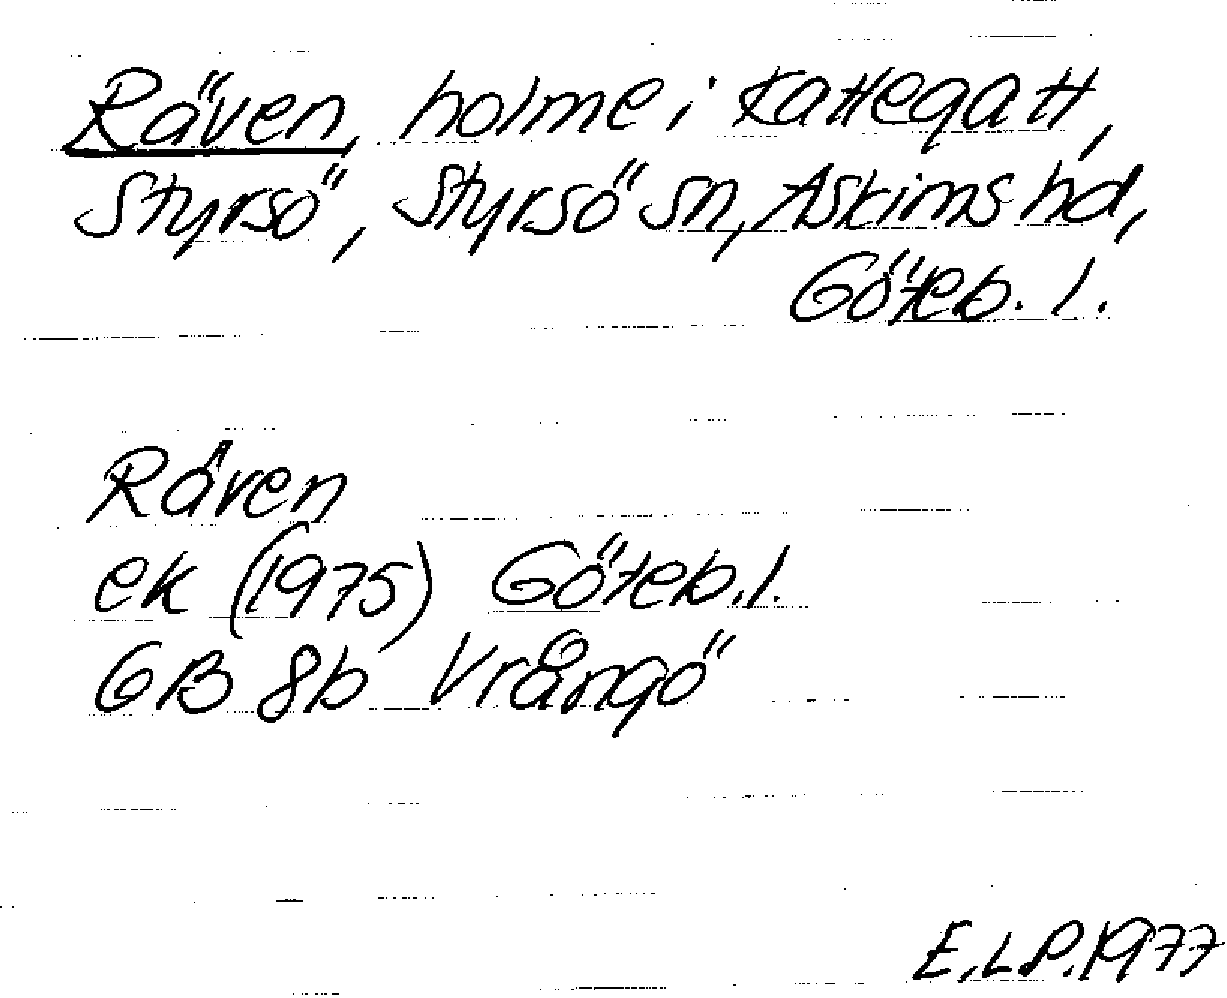 Räven, holme i Kattegatt,
Styrsö, Styrsö sn, Askims hd,
Göteb. l.
Räven
ek (1975) Göteb. l.
GB 8b Vrångö
E.L.P. 1977